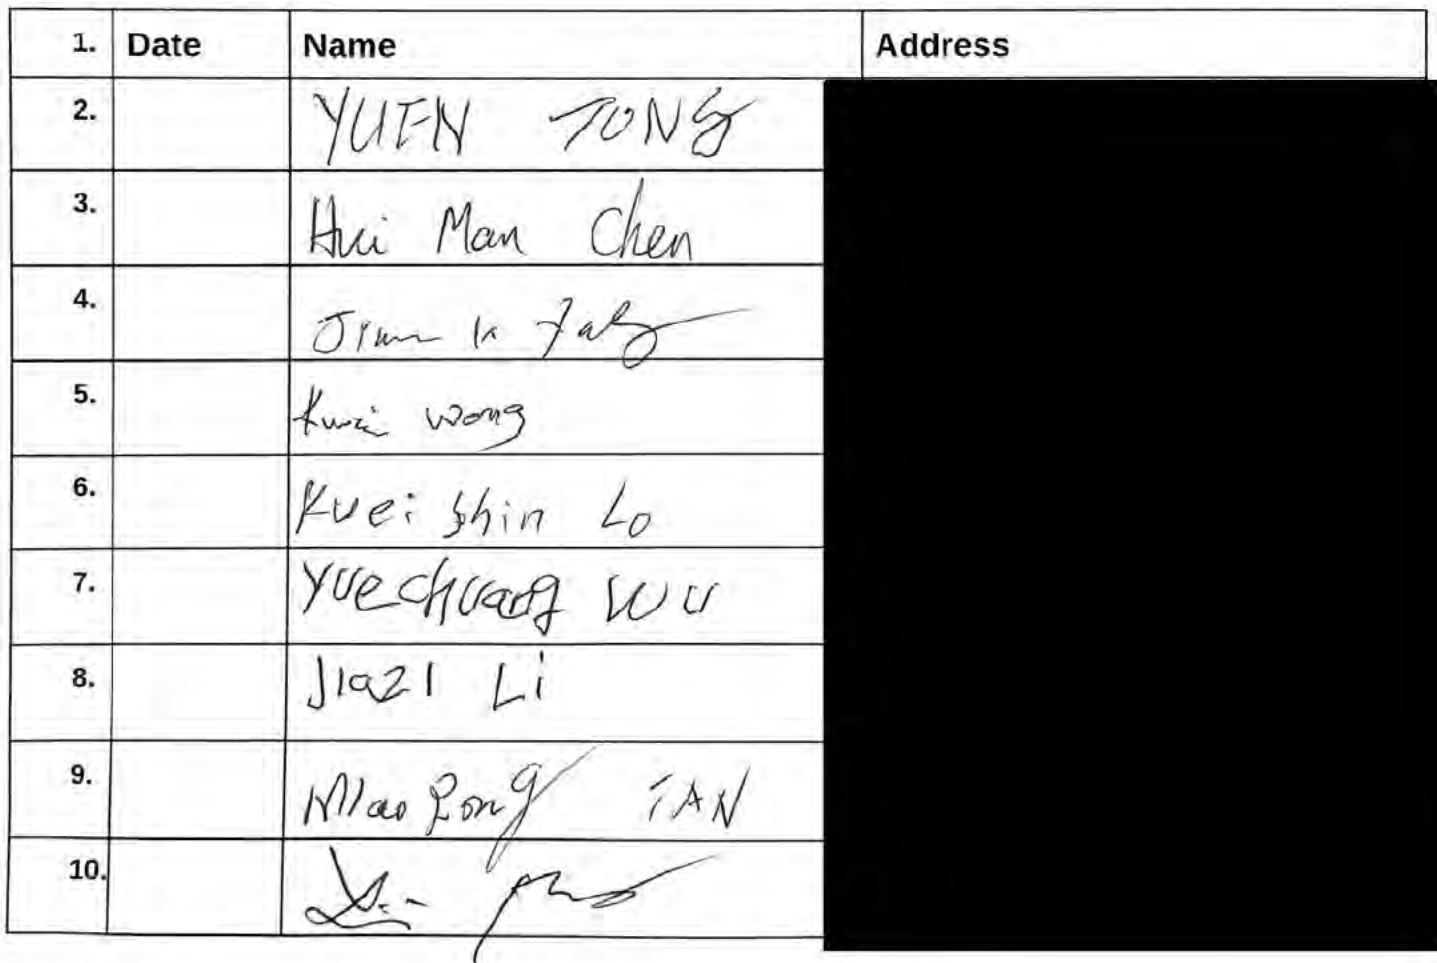 1. Date Name Address
2. YUEN TONG
3. Hui Man Chen
4.
5. Kwai Wong
6. Kuei Shin Lo
7. Yuechuang WU
8. Jiazi Li
9. TAN
10.